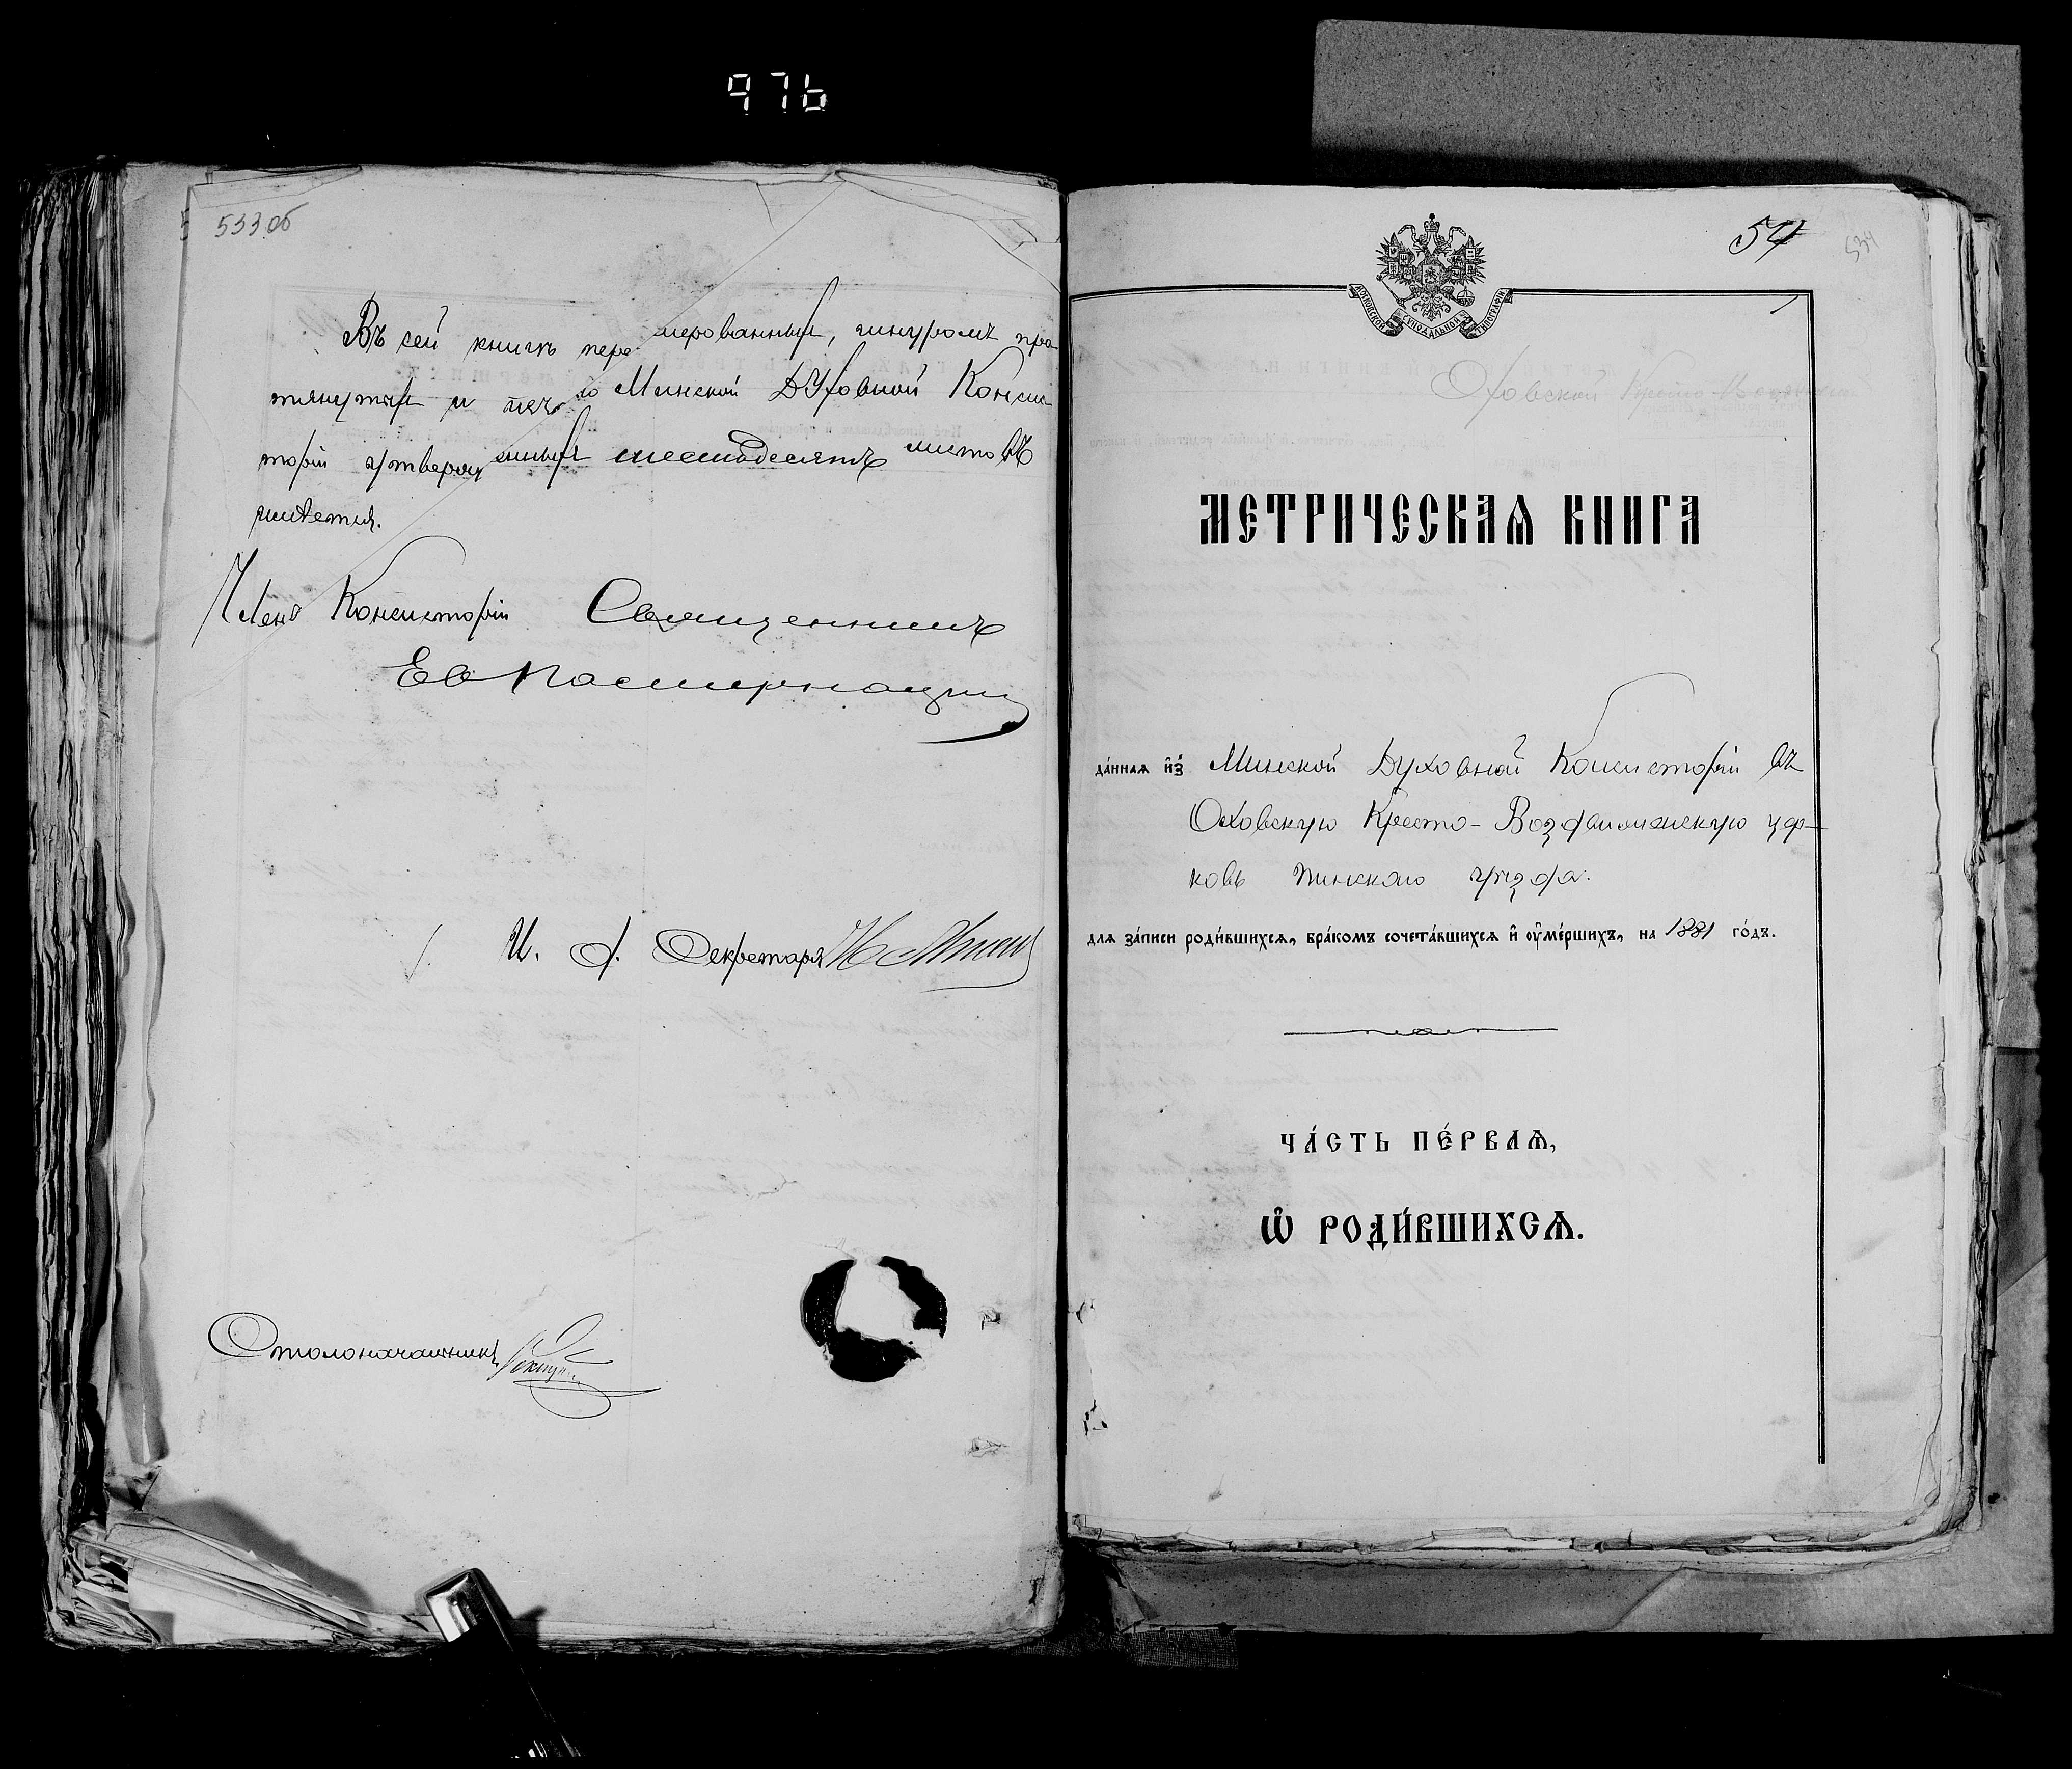 976
533 об
Въ сей книгѣ перемерованныхъ, шнуромъ про-
тянутыхъ и печ ю Минской Духовной Консис-
торіи утвержденныхъ шестьдесятъ листовъ
числится.
Членъ Консисторіи Священникъ
И. д. Секретаря
Столоначальникъ
54
534
МОСКОВСКОЙ СУНОДАЛЬНОЙ ТИПОГРАФІИ
1
Оховской Кресто-Воздвиж
МЕТРИЧЕСКАѦ КНИГА
да́ннаѧ и҆з̾ Минской Духовной Консисторіи въ
Оховскую Кресто-Воздвиженскую цер-
ковь Пинскаго уѣзда.
для за́писи роди́вшихсѧ, бра́комъ сочета́вшихсѧ и҆ ᲂу҆ме́ршихъ, на 1881 го́дъ.
ЧА́СТЬ ПЕ́РВАѦ,
Ѡ҆ РОДИ́ВШИХСѦ.